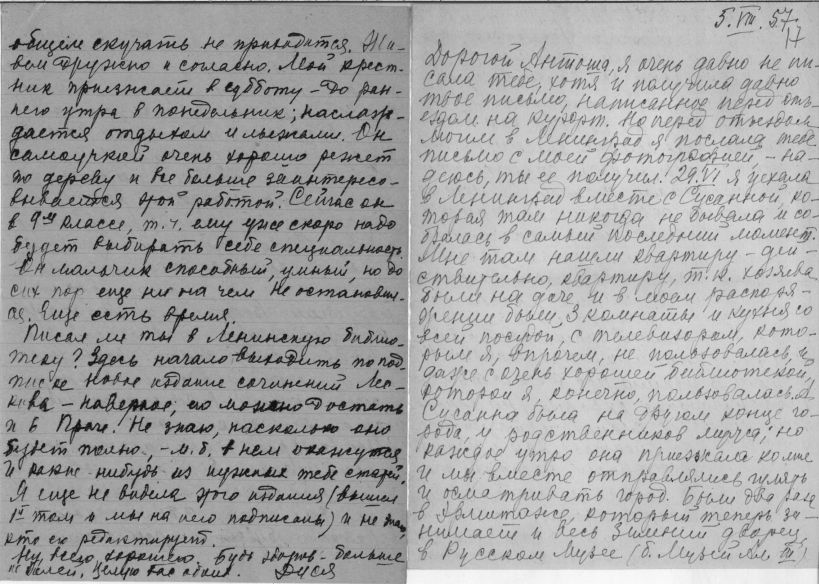 общем скучать не приходится. Жи-
вем дружно и согласно. Мой крест-
ник приезжает в субботу – до ран-
него утра в понедельник; наслаж-
дается отдыхом и лыжами. Он
самоучкой очень хорошо режет
по дереву и все больше заинтересо-
вывается этой работой. Сейчас он
в 9ом классе, т.ч. ему уже скоро надо
будет выбирать себе специальность.
Он мальчик способный, умный, но до
сих пор еще ни на чем не остановил-
ся. Еще есть время.
Писал ли ты в Ленинскую библио-
теку? Здесь начало выходить по под-
писке новое издание сочинений Лес-
кова – наверное, его можно достать
и в Праге. Не знаю, насколько оно
будет полно, – м.б. в нем окажутся
и какие нибудь из нужных тебе статей.
Я еще не видела этого издания (вышел
1й том и мы на него подписаны) и не знаю,
кто его редактирует.
Ну, всего хорошего. Будь здоров – больше
не болей. Целую вас обоих. Дуся
5.VIII.57.
17
Дорогой Антоша, я очень давно не пи-
сала тебе, хотя и получила давно
твое письмо, написанное перед отъ-
ездом на курорт. Но перед отъездом
моим в Ленинград я послала тебе
письмо с моей фотографией, – на-
деюсь, ты ее получил. 29.VI я уехала
в Ленинград вместе с Сусанной, ко-
торая там никогда не бывала и со-
бралась в самый последний момент.
Мне там нашли квартиру – дей-
ствительно, квартиру, т.к. хозяева
были на даче и в моем распоря-
жении были 3 комнаты и кухня со
всей посудой, с телевизором, кото-
рым я, впрочем, не пользовалась, и
даже с очень хорошей библиотекой,
которой я, конечно, пользовалась. А
Сусанна была на другом конце го-
рода, у родственников мужа, но
каждое утро она приезжала ко мне
и мы вместе отправлялись гулять
и осматривать город. Были два раза
в Эрмитаже, который теперь за-
нимает и весь Зимний дворец,
в Русском Музее (б. Музей Ал. III)